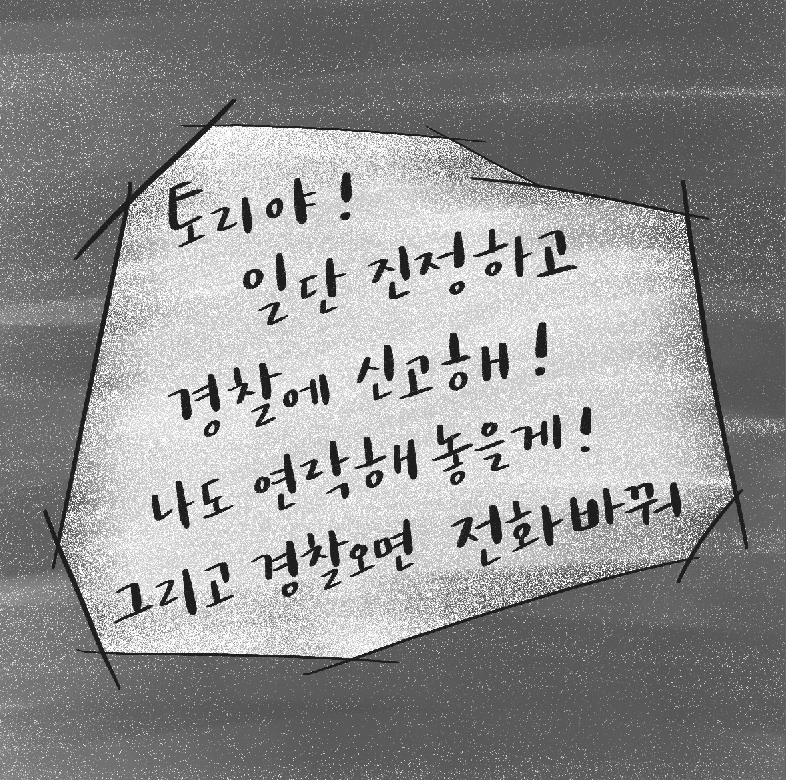 토리야!
일단 진정하고
경찰에 신고해!
나도 연락해 놓을게!
그리고 경찰오면 전화바꿔